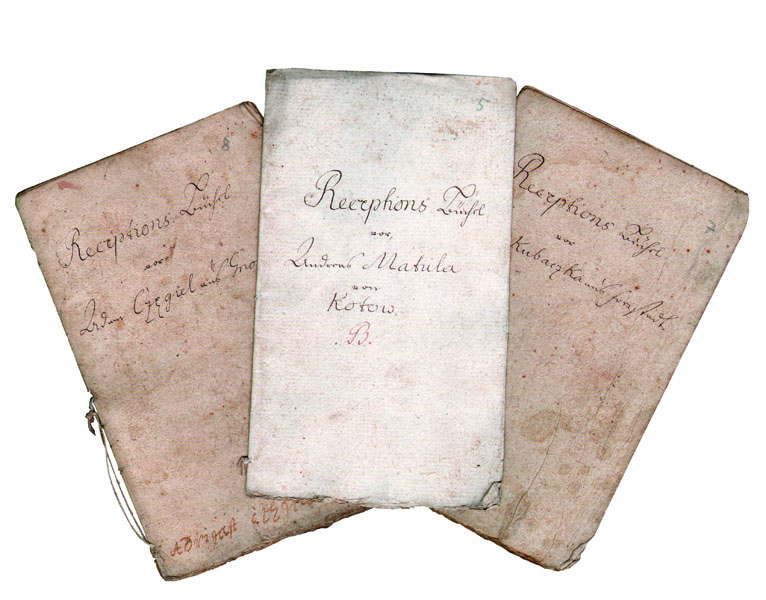 8
Receptions Büchel
vor
Adam Czẹgiel aus
5
Receptions Büchel
vor,
Andreas Matula
von
Kotow.
. B.
7
Receptions Büchel
vor
Kubaczka aus